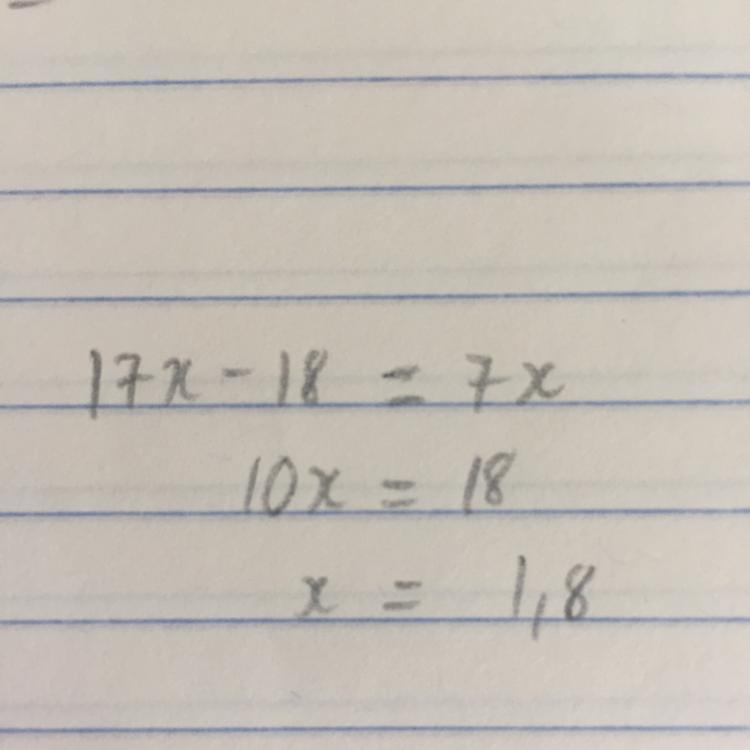 17x - 18 = 7x
10x = 18
x = 1,8